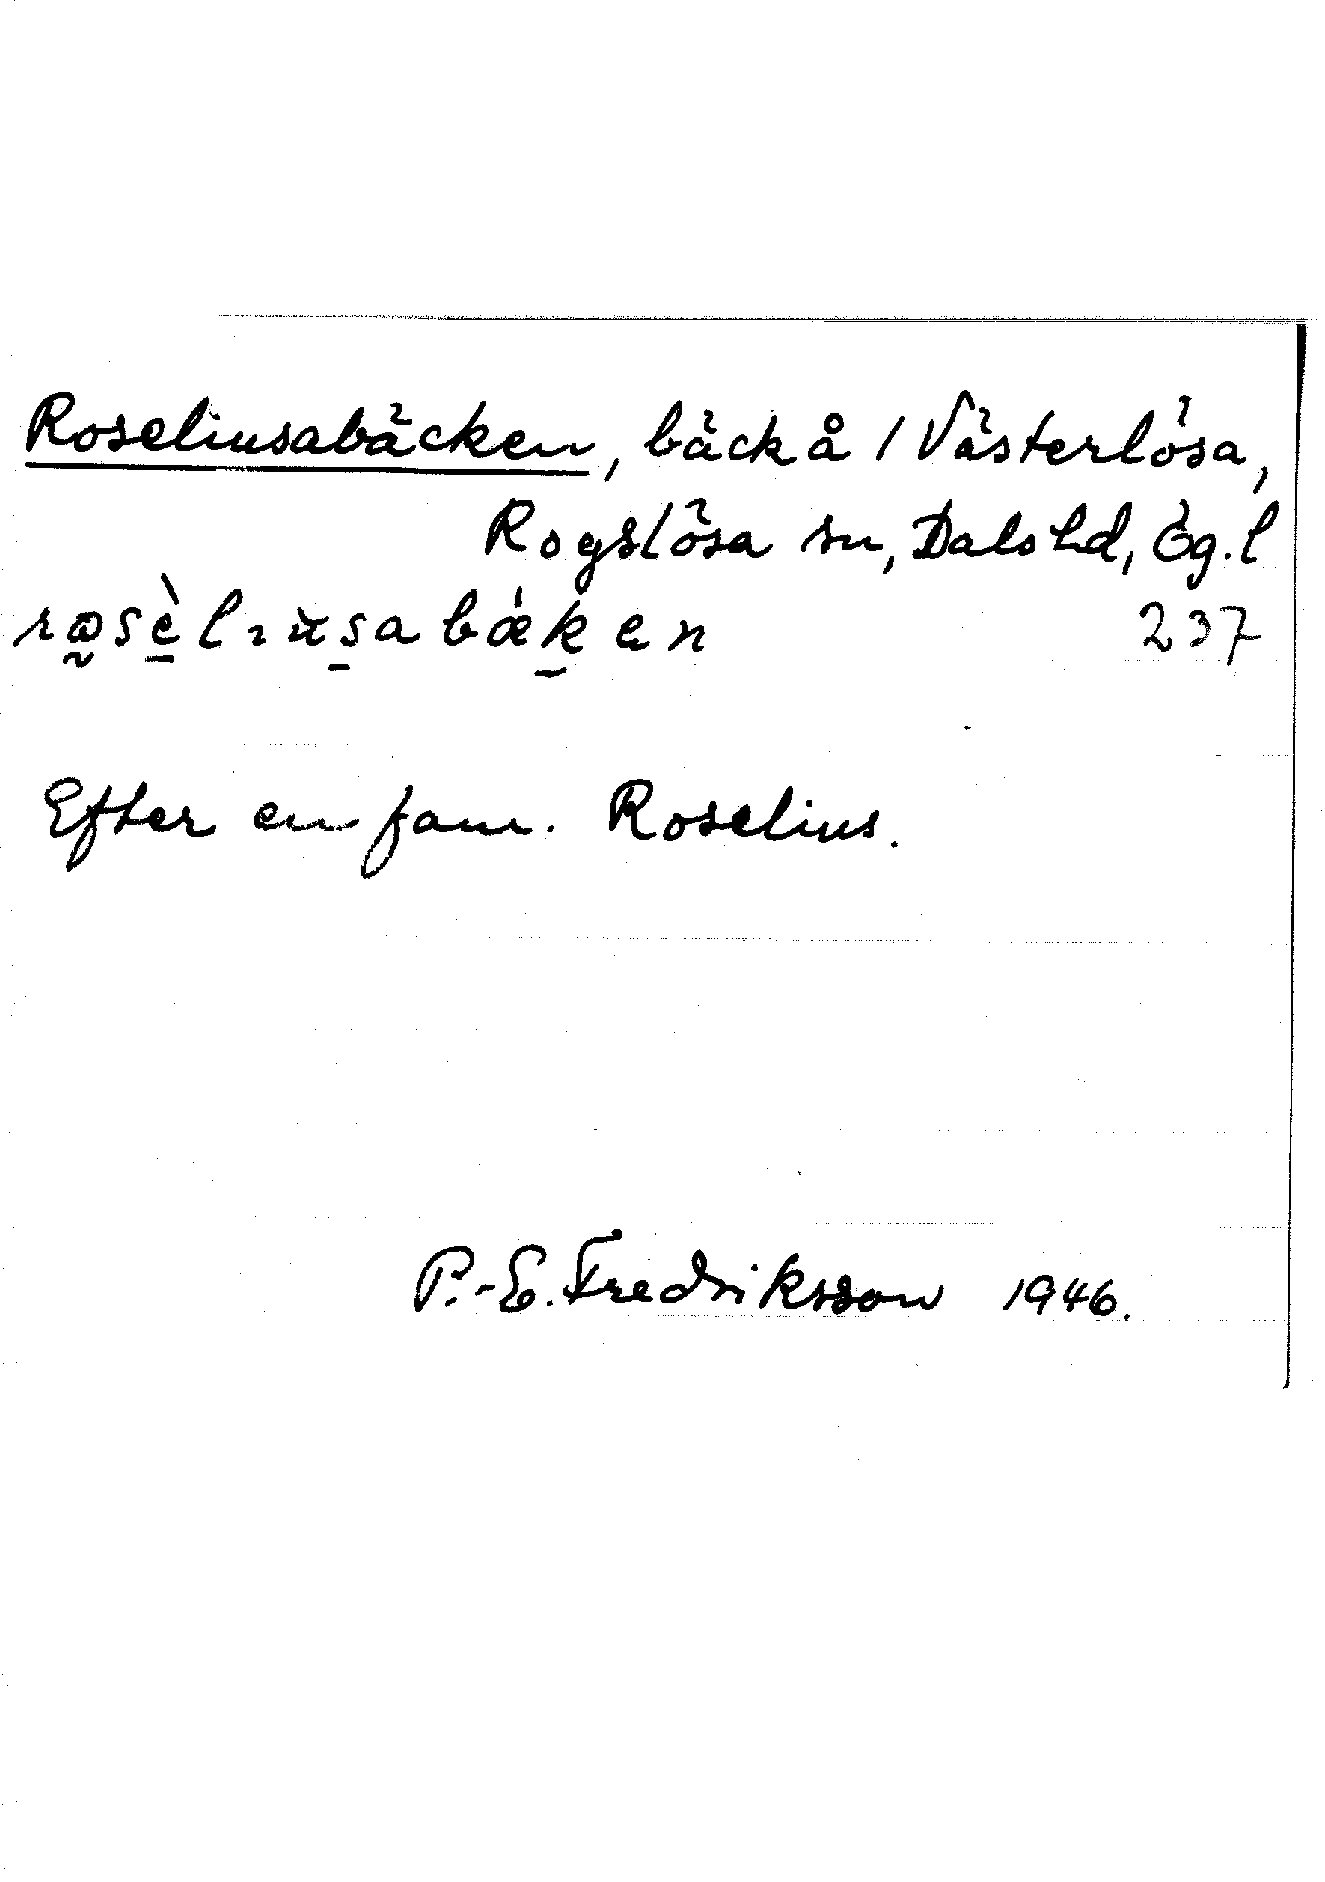 Roseliusabäcken, bäck å 1 Västerlösa,
Rogslösa sn, Dals hd, Ög. l
237
Efter en fam. Roselius.
P.-E. Fredriksson 1946.